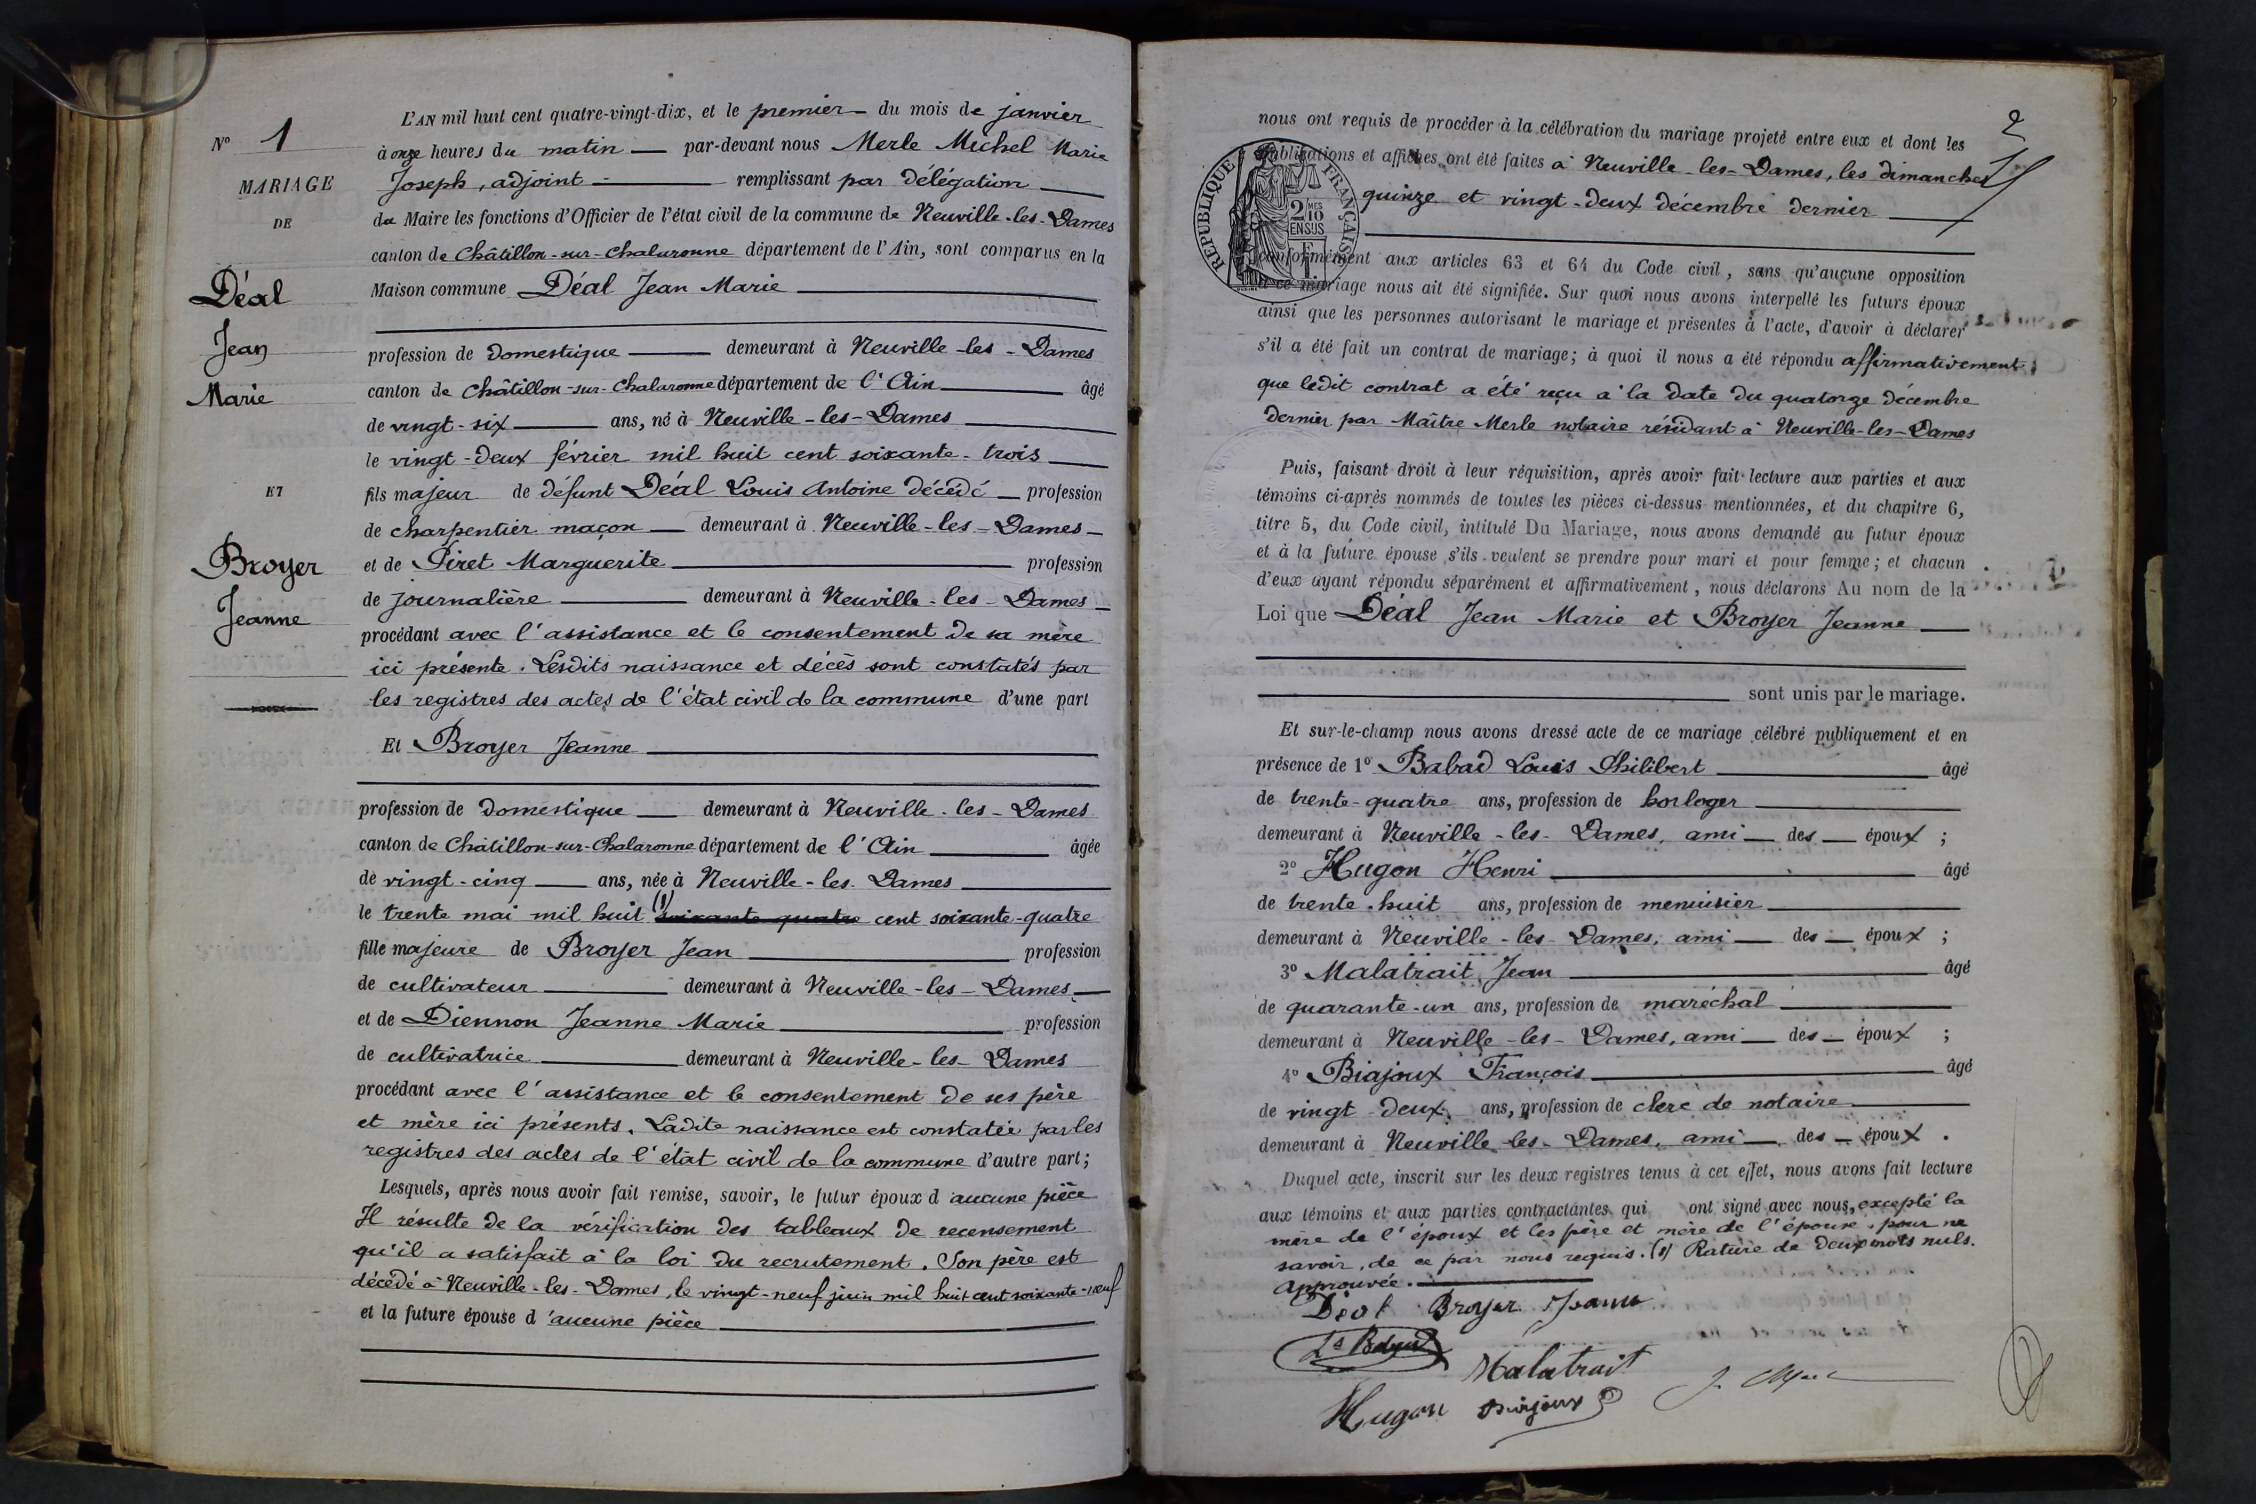 L'AN mil huit cent quatre-vingt-dix, et le premier du mois de janvier
N° 1
à onze heures du matin par-devant nous Merle Michel Marie
MARIAGE
Joseph, adjoint remplissant par délégation
DE
du Maire les fonctions d'Officier de l'état civil de la commune de Neuville-les-Dames
canton de Châtillon-sur-Chalaronne département de l'Ain, sont comparus en la
Déal
Jean
Marie
Maison commune Déal Jean Marie
profession de domestique demeurant à Neuville-les-Dames
canton de Châtillon-sur-Chalaronne département de l'Ain âgé
de vingt-six ans, né à Neuville-les-Dames
le vingt-deux février mil huit cent soixante-trois
ET
fils majeur de défunt Déal Louis Antoine décédé profession
de charpentier maçon demeurant à Neuville-les-Dames
Broyer
Jeanne
et de Piret Marguerite profession
de journalière demeurant à Neuville-les-Dames
procédant avec l'assistance et le consentement de sa mère
ici présente. Lesdits naissance et décès sont constatés par
les registres des actes de l'état civil de la commune d'une part
Et Broyer Jeanne
profession de domestique demeurant à Neuville-les-Dames
canton de Châtillon-sur-Chalaronne département de l'Ain âgée
de vingt-cinq ans, née à Neuville-les-Dames
le trente mai mil huit (1) soixante quatre cent soixante-quatre
fille majeure de Broyer Jean profession
de cultivateur demeurant à Neuville-les-Dames
et de Diennon Jeanne Marie profession
de cultivatrice demeurant à Neuville-les-Dames
procédant avec l'assistance et le consentement de ses père
et mère ici présents. Ladite naissance est constatée par les
registres des actes de l'état civil de la commune d'autre part;
Lesquels, après nous avoir fait remise, savoir, le futur époux d'aucune pièce
Il résulte de la vérification des tableaux de recensement
qu'il a satisfait à la loi du recrutement. Son père est
décédé à Neuville-les-Dames, le vingt-neuf juin mil huit cent soixante-neuf
et la future épouse d'aucune pièce
2
nous ont requis de procéder à la célébration du mariage projeté entre eux et dont les
publications et affiches ont été faites à Neuville-les-Dames, les dimanches
quinze et vingt-deux décembre dernier
RÉPUBLIQUE FRANÇAISE
2 MES 10 EN SUS
conformément aux articles 63 et 64 du Code civil, sans qu'aucune opposition
à ce mariage nous ait été signifiée. Sur quoi nous avons interpellé les futurs époux
ainsi que les personnes autorisant le mariage et présentes à l'acte, d'avoir à déclarer
s'il a été fait un contrat de mariage; à quoi il nous a été répondu affirmativement;
que ledit contrat a été reçu à la date du quatorze décembre
dernier par Maître Merle notaire résidant à Neuville-les-Dames
Puis, faisant droit à leur réquisition, après avoir fait lecture aux parties et aux
témoins ci-après nommés de toutes les pièces ci-dessus mentionnées, et du chapitre 6,
titre 5, du Code civil, intitulé Du Mariage, nous avons demandé au futur époux
et à la future épouse s'ils veulent se prendre pour mari et pour femme; et chacun
d'eux ayant répondu séparément et affirmativement, nous déclarons Au nom de la
Loi que Déal Jean Marie et Broyer Jeanne
sont unis par le mariage.
Et sur-le-champ nous avons dressé acte de ce mariage célébré publiquement et en
présence de 1° Babad Louis Philibert âgé
de trente-quatre ans, profession de horloger
demeurant à Neuville-les-Dames, ami des époux;
2° Hugon Henri âgé
de trente-huit ans, profession de menuisier
demeurant à Neuville-les-Dames, ami des époux;
3° Malatrait Jean âgé
de quarante-un ans, profession de maréchal
demeurant à Neuville-les-Dames, ami des époux;
4° Biajoux François âgé
de vingt-deux ans, profession de clerc de notaire
demeurant à Neuville-les-Dames, ami des époux.
Duquel acte, inscrit sur les deux registres tenus à cet effet, nous avons fait lecture
aux témoins et aux parties contractantes qui ont signé avec nous, excepté la
mère de l'époux et les père et mère de l'épouse, pour ne
savoir, de ce par nous requis. (1) Rature de deux mots nuls.
Approuvée.
Déal Broyer Jeanne
Malatrait
Hugon Biajoux